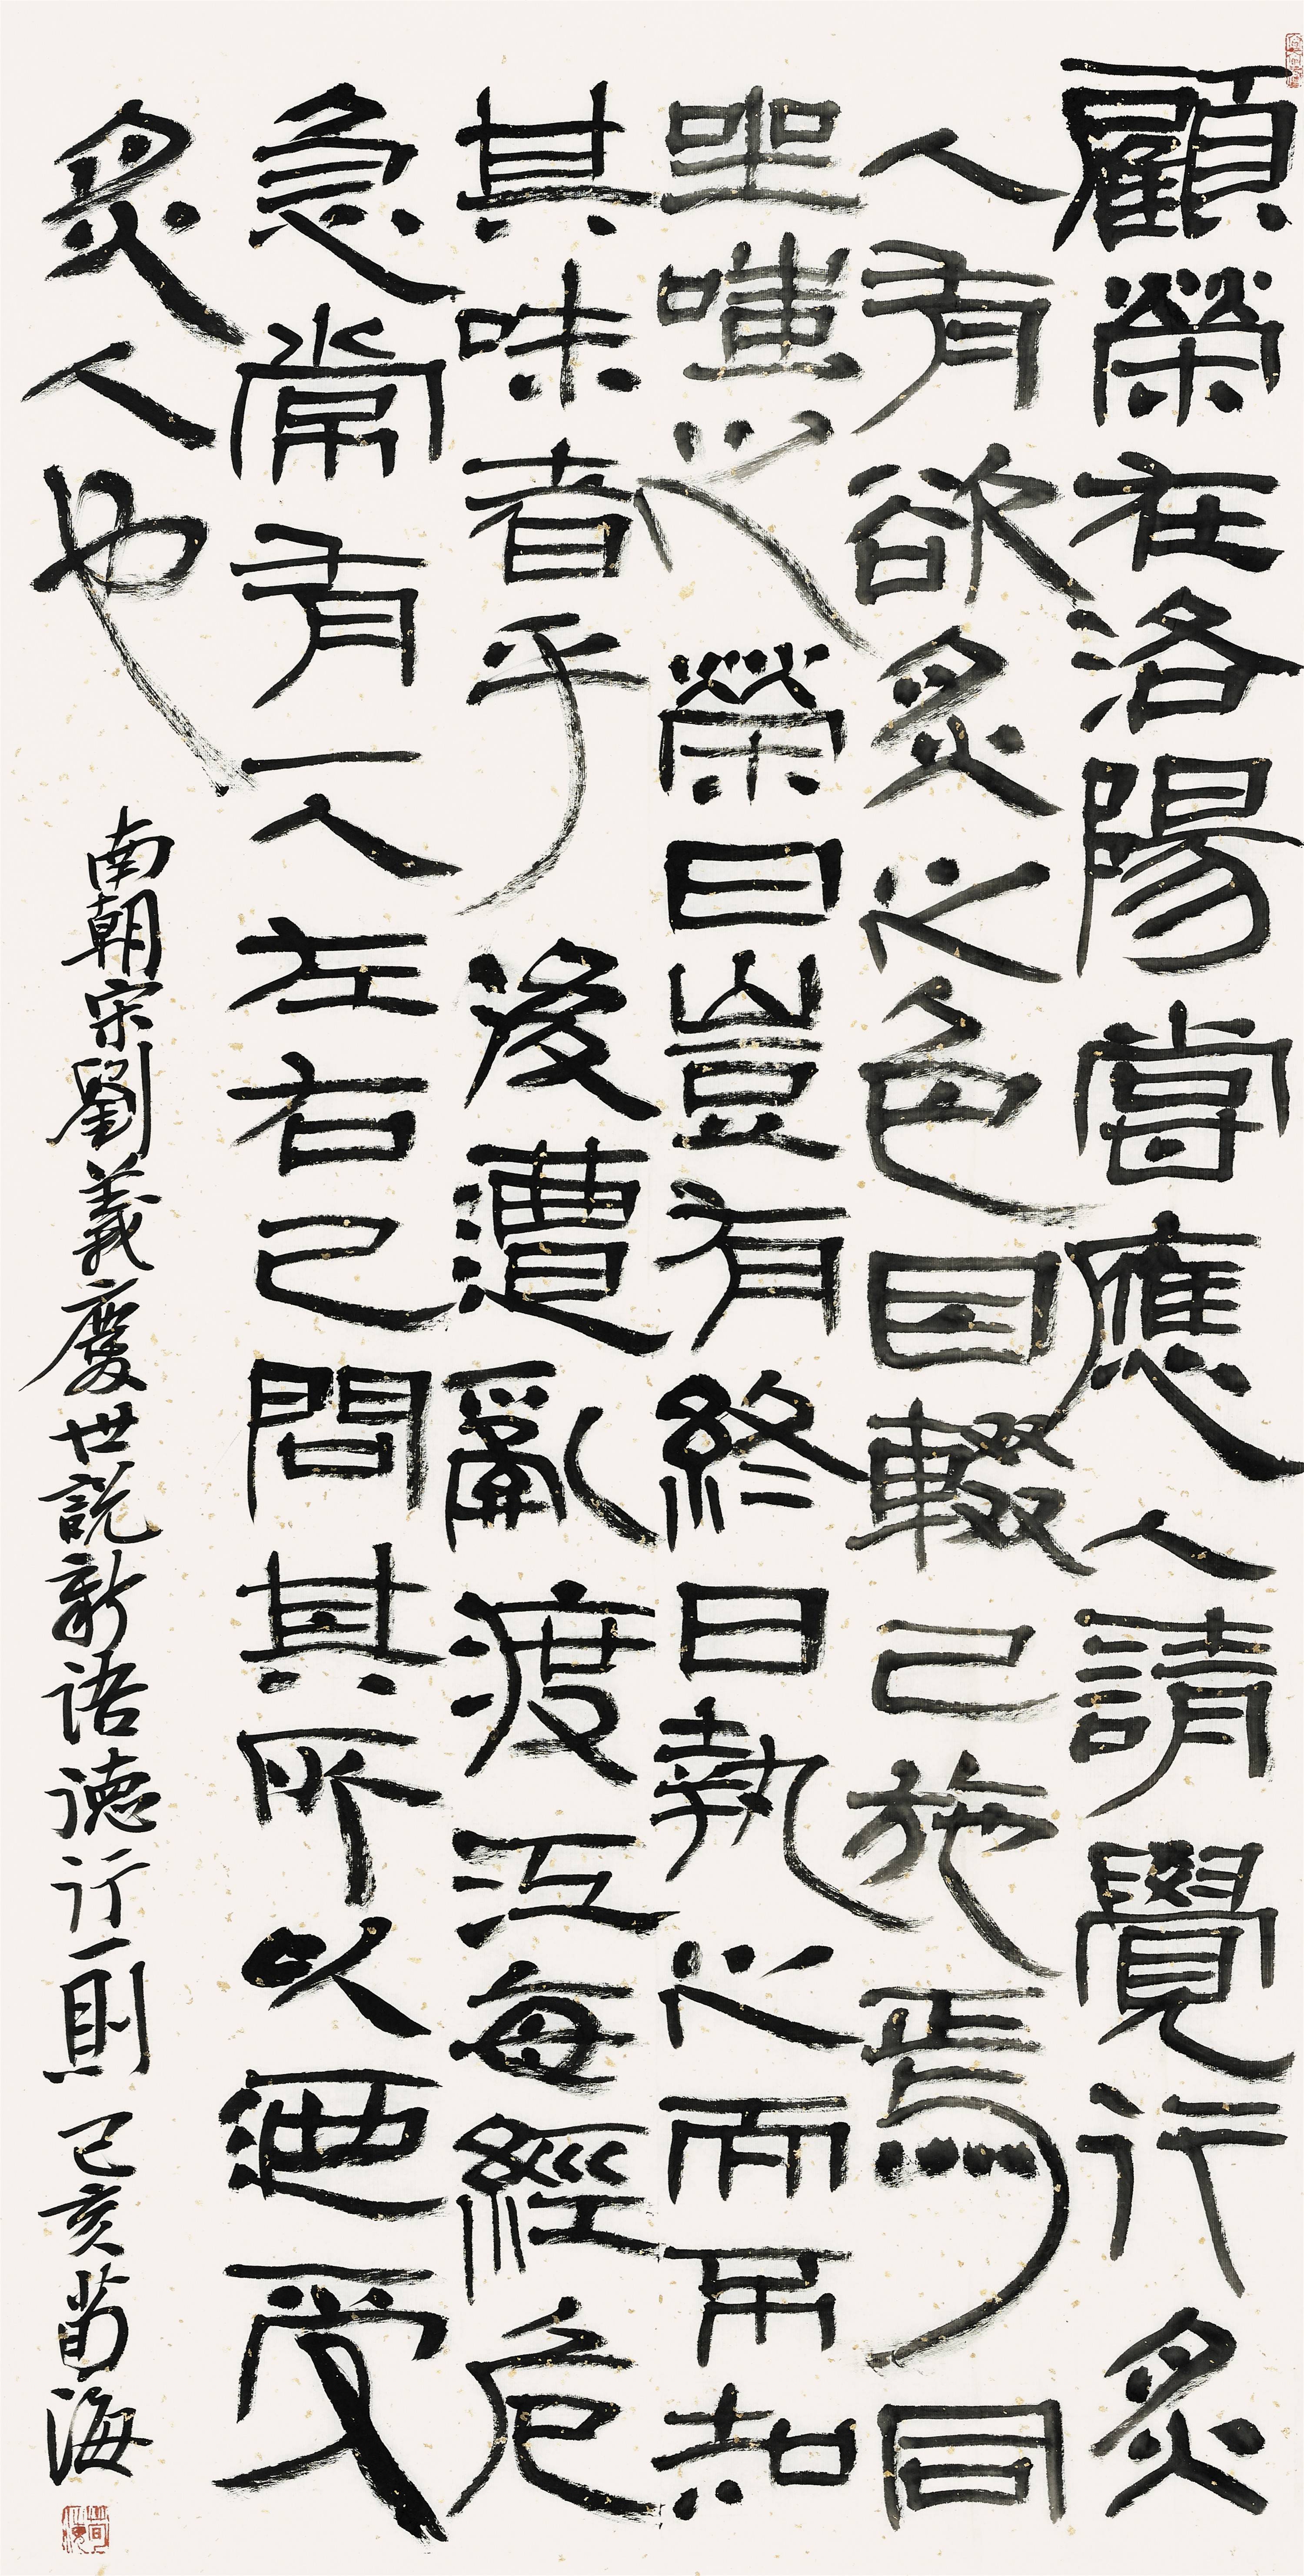 顧榮在洛陽嘗應人請覺行炙
人有欲炙之色因輟己施焉同
坐嗤之榮曰豈有終日執之而不知
其味者乎後遭亂渡江每經危
急常有一人左右己問其所以廼受
炙人也
南朝宋劉義慶世說新語德行一則 己亥荀海